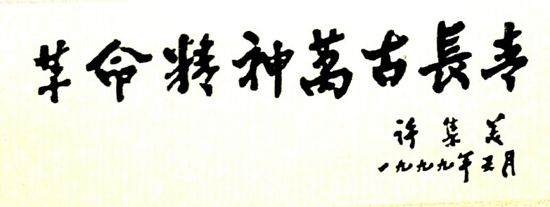 革命精神萬古長青
许集美
一九九九年五月